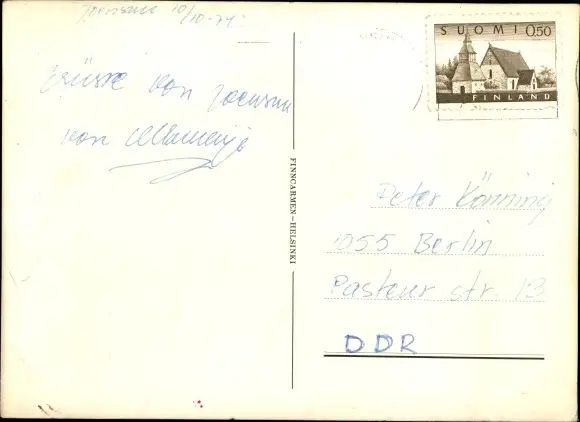 Joensuu 10/10-74
Grüsse von Joensuu
von
SUOMI 0,50
FINLAND
FINNCARMEN - HELSINKI
Peter Könning
1055 Berlin
Pasteur str. 13
DDR